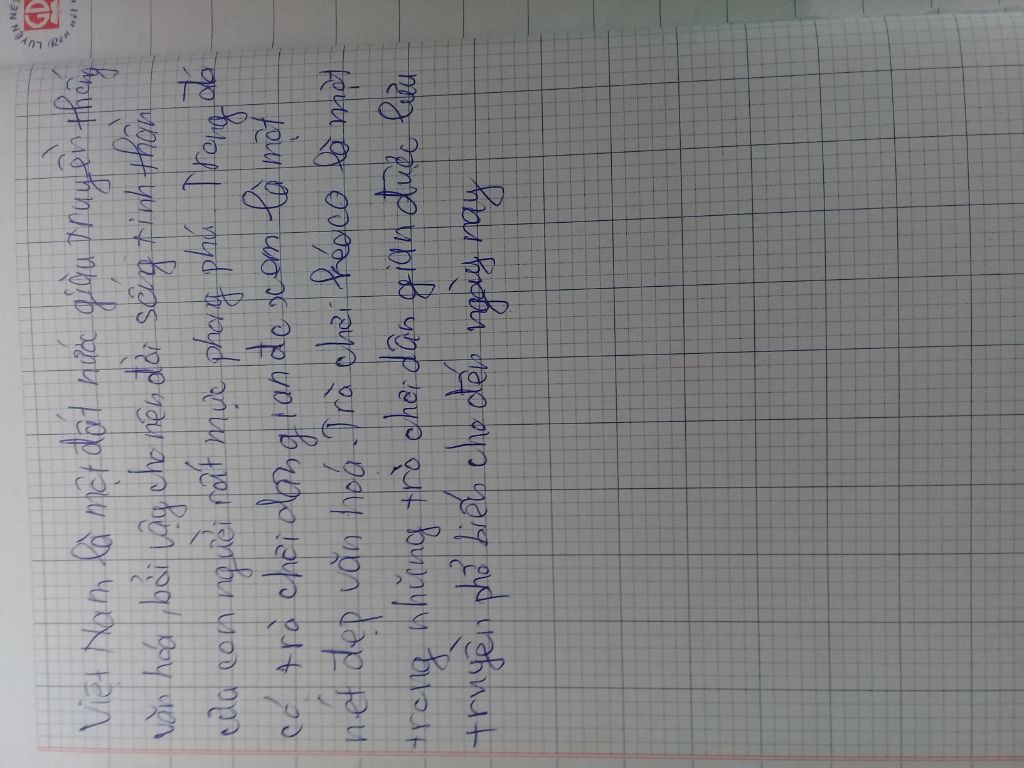 Việt Nam là một đất nước giàu truyền thống
văn hóa, bởi vậy cho nên đời sống tinh thần
của con người rất mực phong phú. Trong đó
có trò chơi dân gian đc xem là một
nét đẹp văn hoá. Trò chơi kéo co là một
trong những trò chơi dân gian được lưu
truyền phổ biến cho đến ngày nay
LUYỆN NÉT